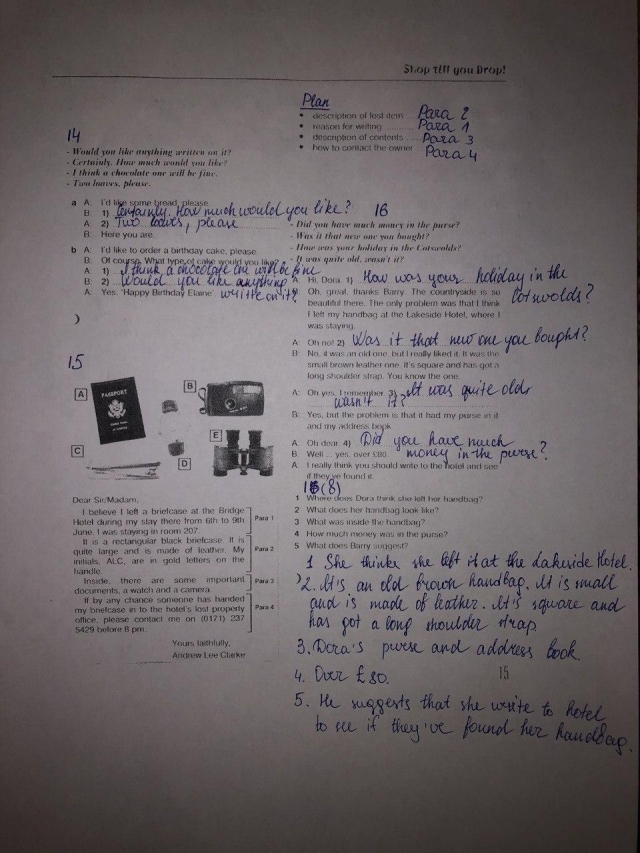 Shop till you Drop!
Plan
• description of lost item Para 2
• reason for writing .......... Para 1
• description of contents .... Para 3
• how to contact the owner Para 4
14
- Would you like anything written on it?
- Certainly. How much would you like?
- I think a chocolate one will be fine.
- Two loaves, please.
a A: I'd like some bread, please.
B: 1) Certainly. How much would you like?
A: 2) Two loaves, please
B: Here you are.
b A: I'd like to order a birthday cake, please.
B: Of course. What type of cake would you like?
A: 1) I think a chocolate one will be fine
B: 2) Would you like anything
written on it?
A: Yes. 'Happy Birthday Elaine'.
)
15
A
PASSPORT
B
C
D
E
Dear Sir/Madam,
I believe I left a briefcase at the Bridge
Hotel during my stay there from 6th to 9th
June. I was staying in room 207.
Para 1
It is a rectangular black briefcase. It is
quite large and is made of leather. My
initials, ALC, are in gold letters on the
handle.
Para 2
Inside, there are some important
documents, a watch and a camera.
Para 3
If by any chance someone has handed
my briefcase in to the hotel's lost property
office, please contact me on (0171) 237
5429 before 8 pm.
Para 4
Yours faithfully,
Andrew Lee Clarke
16
- Did you have much money in the purse?
- Was it that new one you bought?
- How was your holiday in the Cotswolds?
- It was quite old, wasn't it?
A: Hi, Dora. 1) How was your holiday in the
Cotswolds?
B: Oh, great, thanks Barry. The countryside is so
beautiful there. The only problem was that I think
I left my handbag at the Lakeside Hotel, where I
was staying.
A: Oh no! 2) Was it that new one you bought?
B: No, it was an old one, but I really liked it. It was the
small brown leather one. It's square and has got a
long shoulder strap. You know the one.
A: Oh yes, I remember. 3) It was quite old,
wasn't it?
B: Yes, but the problem is that it had my purse in it
and my address book.
A: Oh dear. 4) Did you have much
money in the purse?
B: Well ... yes, over £80.
A: I really think you should write to the hotel and see
if they've found it.
16(8)
1 Where does Dora think she left her handbag?
2 What does her handbag look like?
3 What was inside the handbag?
4 How much money was in the purse?
5 What does Barry suggest?
1 She thinks she left it at the Lakeside Hotel.
2. It's an old brown handbag. It is small
and is made of leather. It's square and
has got a long shoulder strap.
3. Dora's purse and address book.
4. Over £80.
15
5. He suggests that she write to hotel
to see if they've found her handbag.